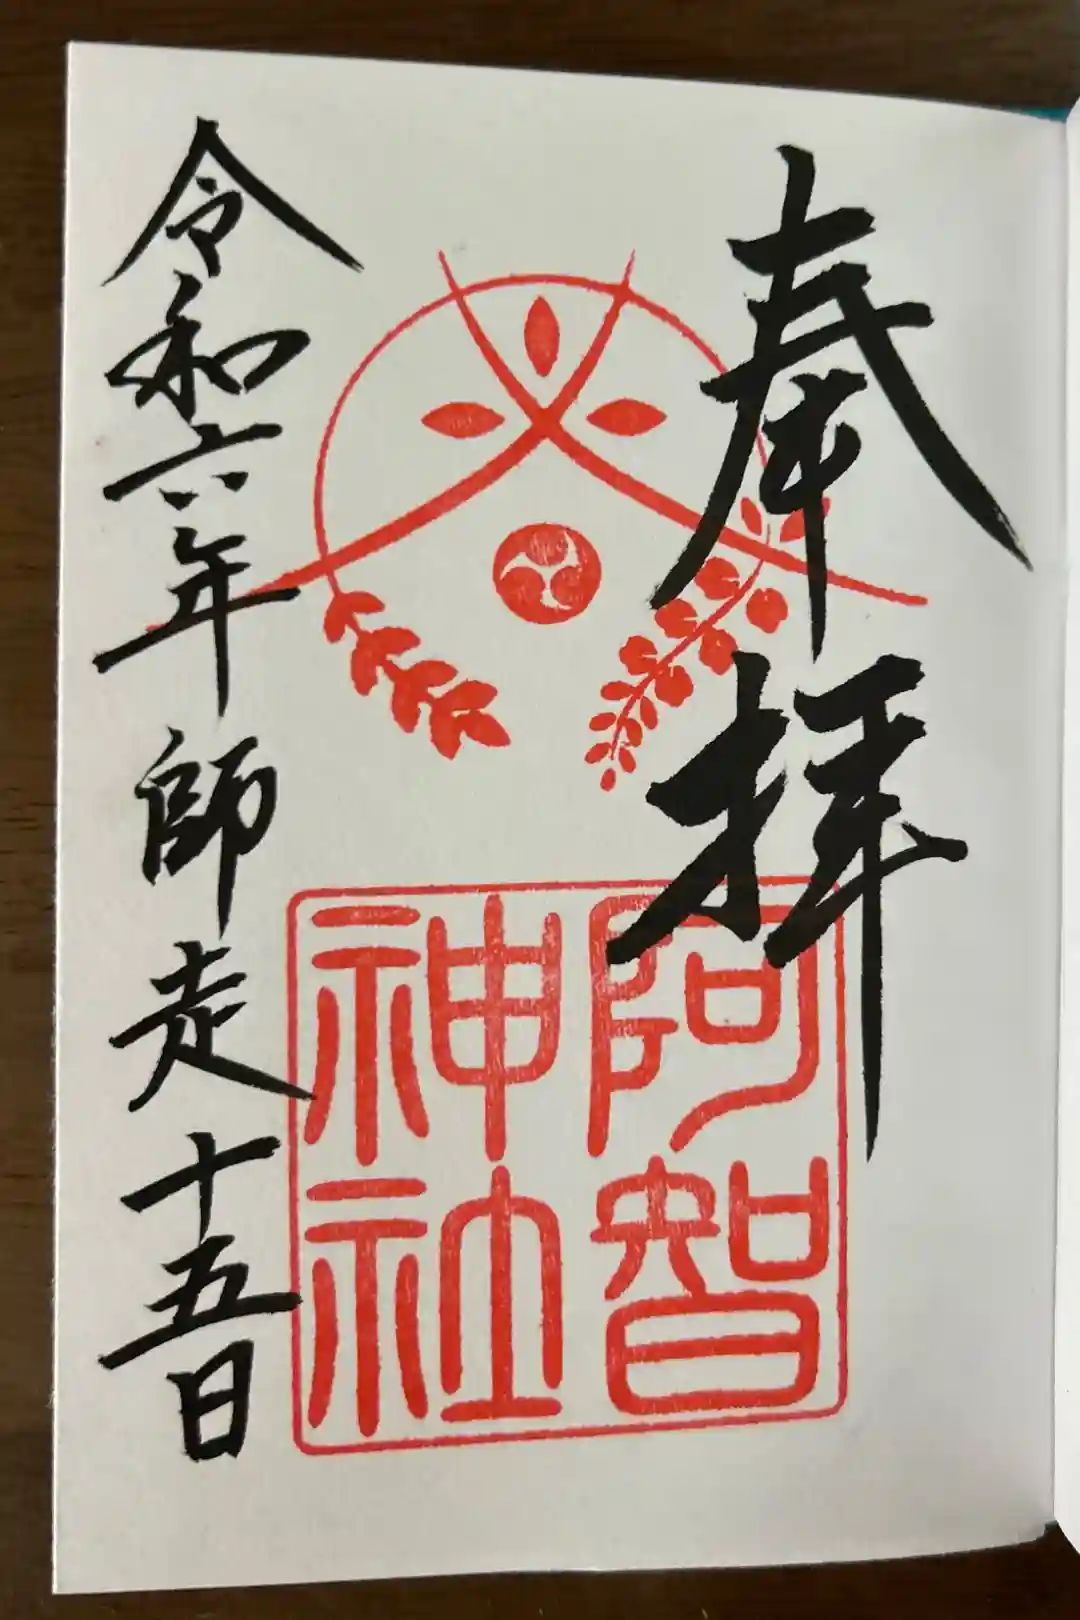 奉拝
阿智
神社
令和六年師走十五日